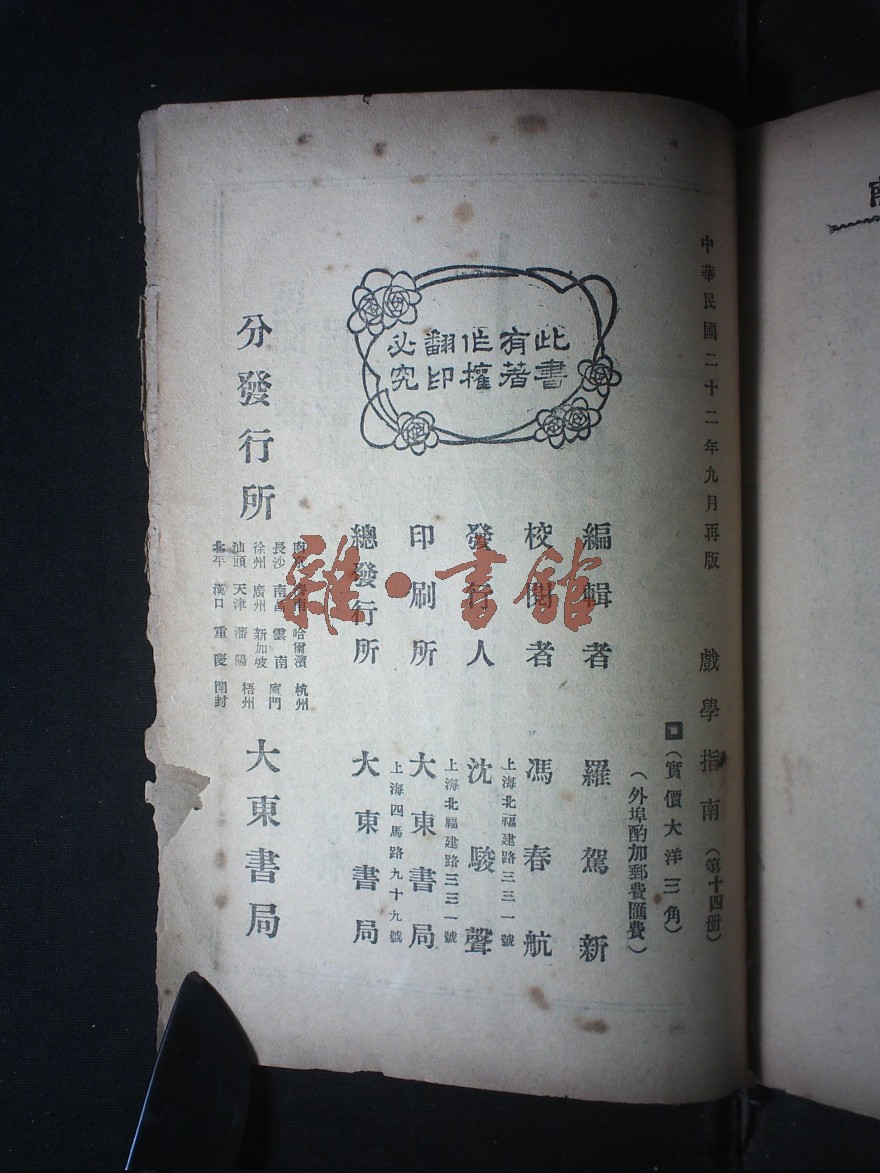 中華民國二十二年九月再版
戲學指南（第十四册）
（實價大洋三角）
（外埠酌加郵費匯費）
此書
有著
作權
翻印
必究
編輯者 羅駕新
校閱者 馮春航
上海北福建路三三一號
發行人 沈駿聲
上海北福建路三三一號
印刷所 大東書局
上海四馬路九十九號
總發行所 大東書局
分發行所
南京 濟南 哈爾濱 杭州
長沙 南昌 雲南 廈門
徐州 廣州 新加坡 梧州
汕頭 天津 瀋陽
北平 漢口 重慶 開封
大東書局
雜·書館